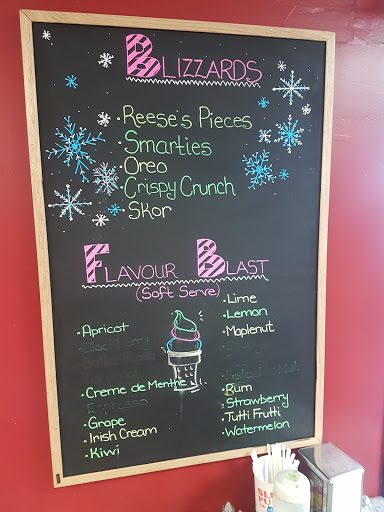 BLIZZARDS
• Reese's Pieces
• Smarties
• Oreo
• Crispy Crunch
• Skor
FLAVOUR BLAST
(Soft Serve)
• Apricot
• Creme de Menthe
• Grape
• Irish Cream
• Kiwi
• Lime
• Lemon
• Maplenut
• Rum
• Strawberry
• Tutti Frutti
• Watermelon